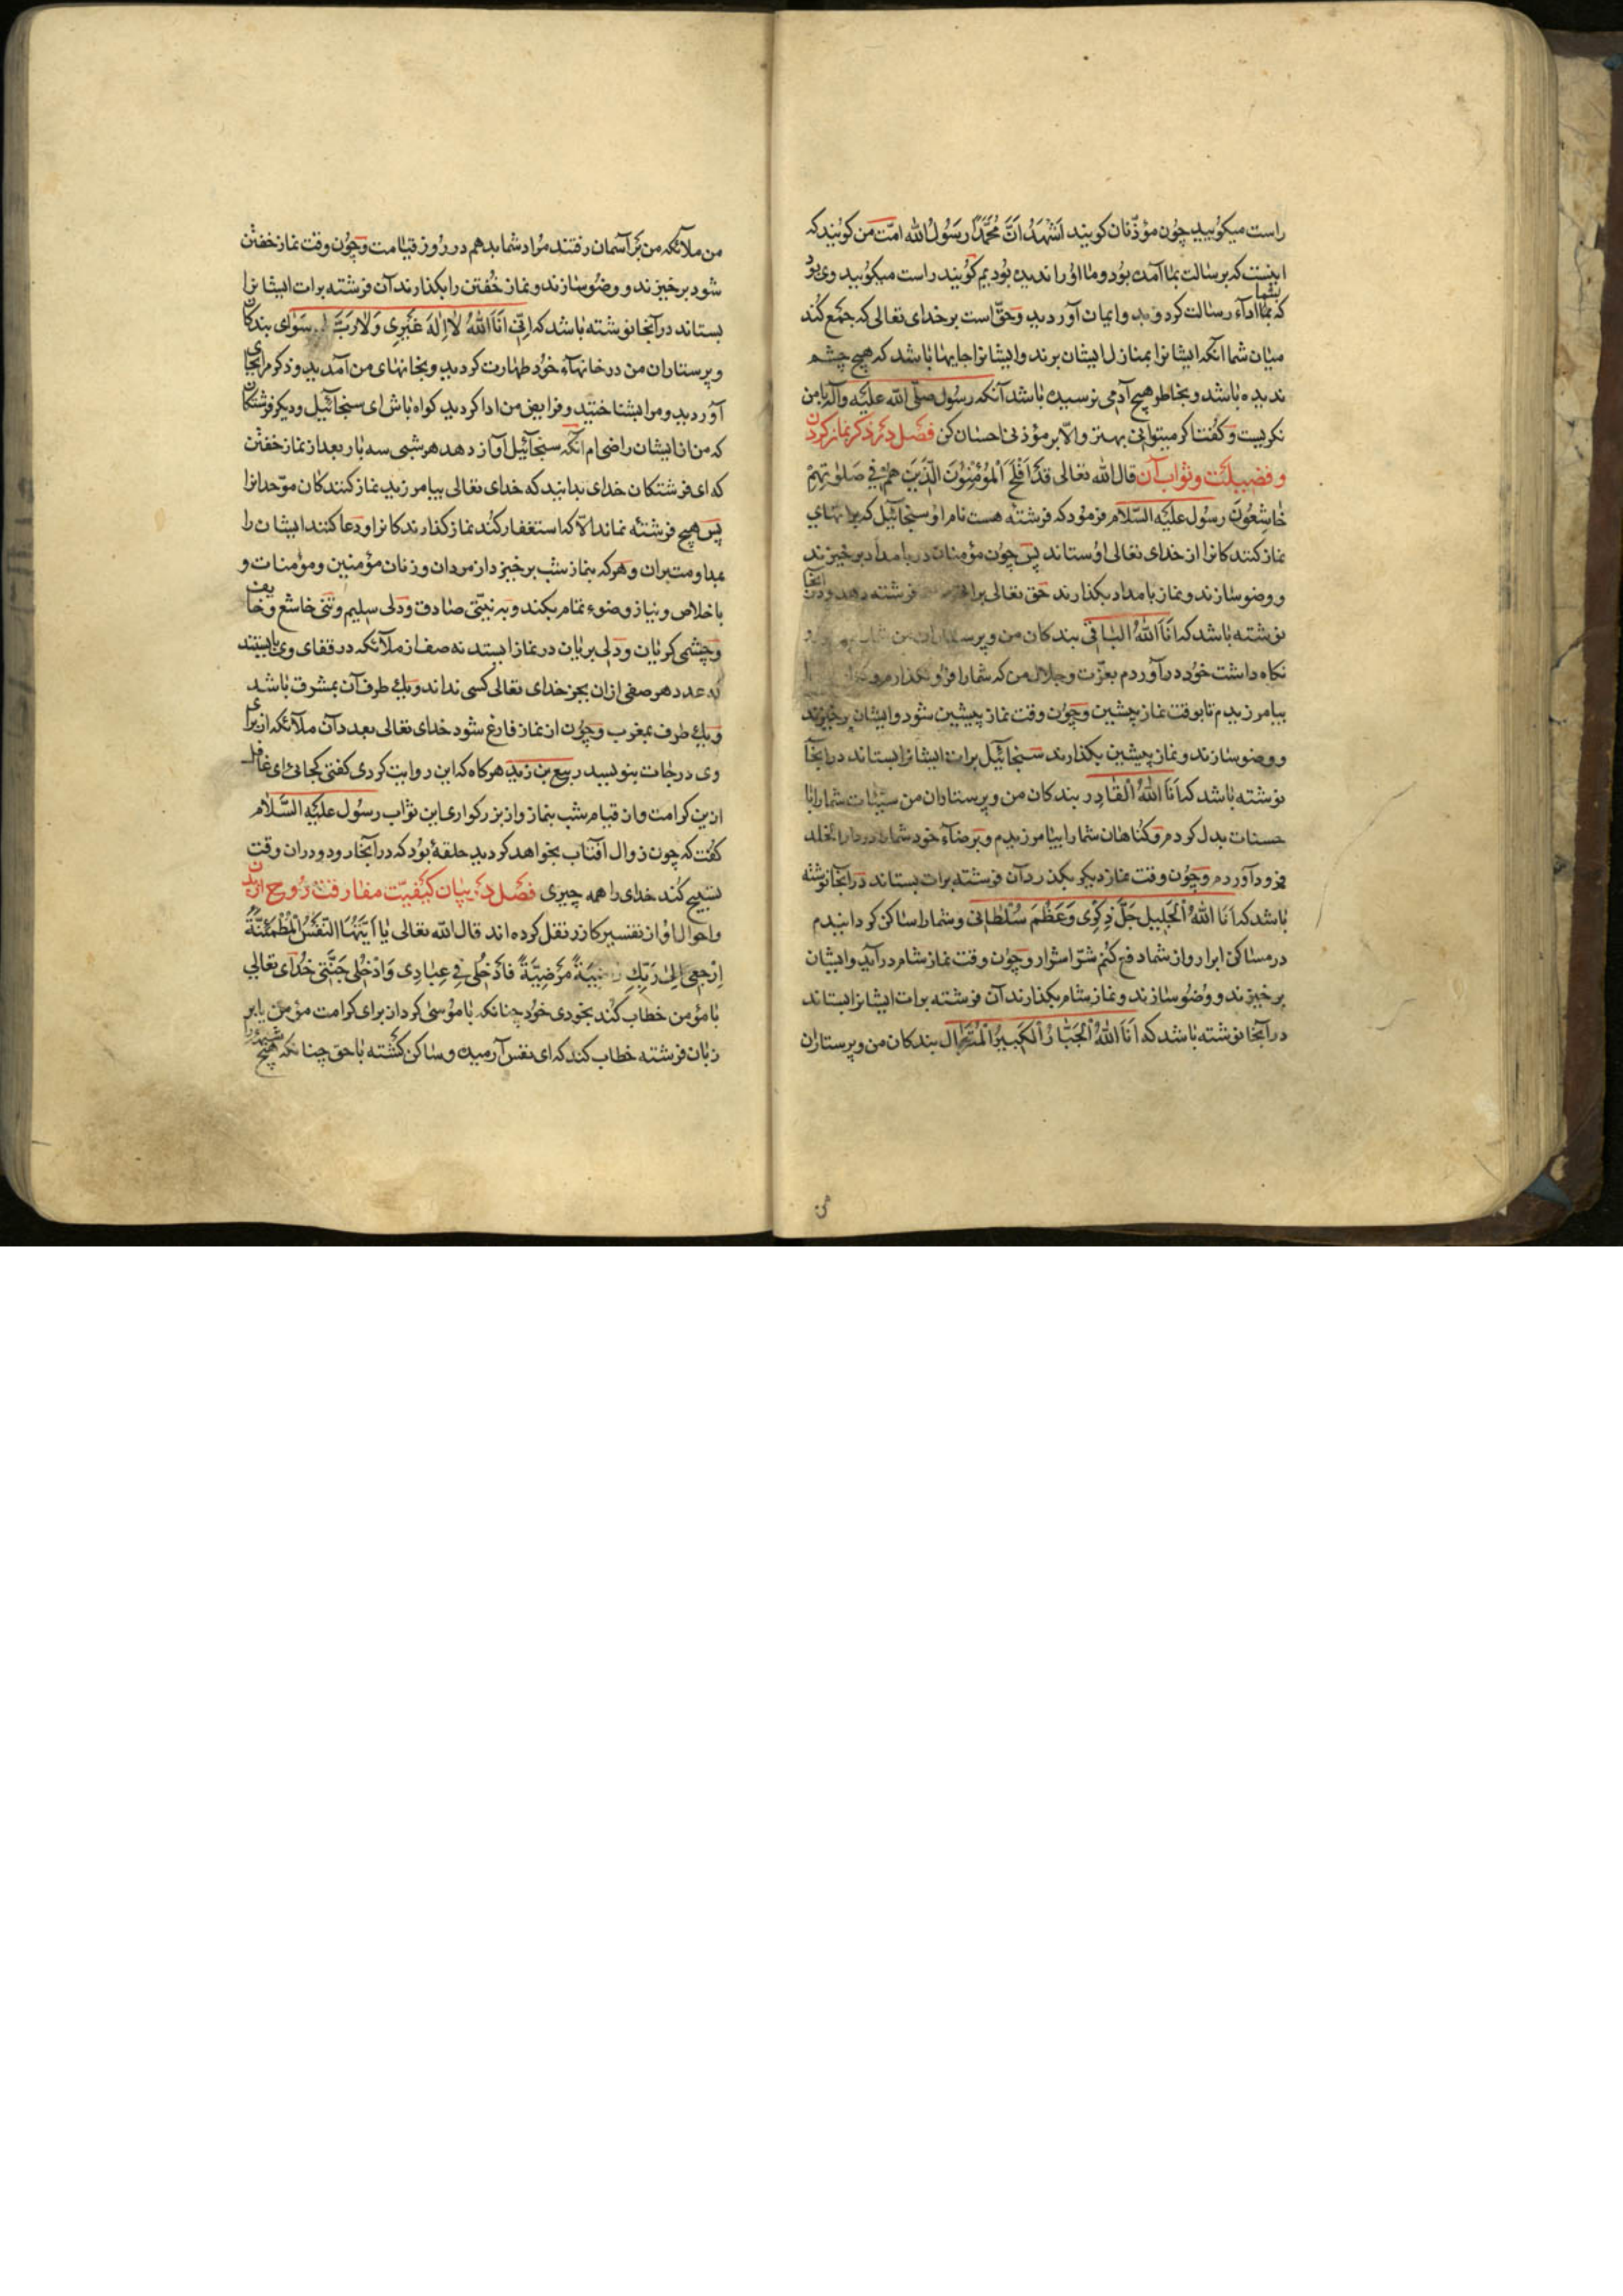 راست میکویید چون مؤذّنان کویند اَشْهَدُ اَنَّ مُحَمَّدًا رَسُولُ الله امّت من کویند که
اینست که برسالت بما آمده بود و ما او را ندیده بودیم کویند راست میکویید وی بود
که بشما اداء رسالت کرد و ایمان آوردید و حقّ است بر خدای تعالی که جمع کند
میان شما آنکه ایشانرا بمنازل ایشان برند و ایشانرا جایها باشد که هیچ چشم
ندیده باشد و بخاطر هیچ آدمی نرسیده باشد آنکه رسول صلّی الله علیه وآله بامن
نکریست و کفت اکر میتوانی بهتر والّا بر مؤذنی احسان کن فصل در ذکر نماز کردن
و فضیلت و ثواب آن قال الله تعالی قَدْ اَفْلَحَ الْمُؤْمِنُونَ الَّذِینَ هُمْ فِی صَلٰوتِهِمْ
خَاشِعُونَ رسول علیه السّلام فرمود که فرشتهٔ هست نام او سنجائیل که براتهای
نماز کنندکانرا از خدای تعالی او ستاند پس چون مؤمنان در بامداد برخیزند
و وضو سازند و نماز بامداد بکذارند حق تعالی براتی فرشته دهد و در آنجا
نوشته باشد که اَنَا اللهُ الْبَاقِی بندکان من و پرستاران من
نکاه داشت خود در آوردم بعزّت و جلال من که شما را فرو نکذارم و
بیامرزیدم تا بوقت نماز پیشین و چون وقت نماز پیشین شود و ایشان برخیزند
و وضو سازند و نماز پیشین بکذارند سنجائیل برات ایشانرا بستاند در آنجا
نوشته باشد که اَنَا اللهُ الْقَادِر بندکان من و پرستاران من سیّئات شما را با
حسنات بدل کردم و کناهان شما را بیامرزیدم و برضاء خود شما را در دار الخلد
فرود آوردم و چون وقت نماز دیکر بکذرد آن فرشته برات بستاند در آنجا نوشته
باشد که اَنَا اللهُ الْجَلِیل جَلَّ ذِکْرِی وَ عَظُمَ سُلْطَانِی و شما را ساکن کردانیدم
در مساکن ابرار و از شما دفع کنم شرّ اشرار و چون وقت نماز شام در آید و ایشان
برخیزند و وضو سازند و نماز شام بکذارند آن فرشته برات ایشانرا بستاند
در آنجا نوشته باشد که اَنَا اللهُ الْجَبَّارُ الْکَبِیرُ الْمُتَعَال بندکان من و پرستاران
من ملآئکه من بر آسمان رفتند مراد شما بدهم در روز قیامت و چون وقت نماز خفتن
شود برخیزند و وضو سازند و نماز خفتن را بکذارند آن فرشته برات ایشانرا
بستاند در آنجا نوشته باشد که اِنِّی اَنَا اللهُ لَا اِلٰهَ غَیْرِی وَلَا رَبَّ سِوَای بندکان
و پرستاران من در خانهاء خود طهارت کردید و بخانهای من آمدید و ذکر مرا بجای
آوردید و مرا بشناختید و فرایض من ادا کردید کواه باش ای سنجائیل و دیکر فرشتکان
که من از ایشان راضی ام آنکه سنجائیل آواز دهد هر شبی سه بار بعد از نماز خفتن
که ای فرشتکان خدای بدانید که خدای تعالی بیامرزید نماز کنندکان موحّد انرا
پس هیچ فرشتهٔ نماند الّا که استغفار کند نماز کذارندکانرا و دعا کنند ایشان را
بمداومت بران و هر که بنماز شب برخیزد از مردان و زنان مؤمنین و مؤمنات و
باخلاص و نیاز وضوء تمام بکند و به نیّتی صادق و دلی سلیم و تنی خاشع و خایف
و چشمی کریان و دلی بریان در نماز ایستد نه صف از ملآئکه در قفای وی بایستند
که عدد هر صفی ازان بجز خدای تعالی کسی نداند و یک طرف آن بمشرق باشد
و یک طرف بمغرب و چون از نماز فارغ شود خدای تعالی بعدد آن ملآئکه از برای
وی درجات بنویسد ربیع بن زید هرکاه که این روایت کردی کفتی کجائی ای غافل
ازین کرامت و از قیام شب بنماز و از بزرکواری این ثواب رسول علیه السّلام
کفت که چون زوال آفتاب بخواهد کردید حلقهٔ بود که در آنجا رود و دران وقت
تسبیح کند خدای را همه چیزی فصل در بیان کیفیّت مفارقت روح از بدن
و احوال او از تفسیر کازر نقل کرده اند قال الله تعالی یَا اَیَّتُهَا النَّفْسُ الْمُطْمَئِنَّةُ
اِرْجِعِی اِلیٰ رَبِّكِ رَاضِیَةً مَرْضِیَّةً فَادْخُلِی فِی عِبَادِی وَادْخُلِی جَنَّتِی خدای تعالی
با مؤمن خطاب کند بخودی خود چنانکه با موسی کرد از برای کرامت مؤمن یا بر
زبان فرشته خطاب کند که ای نفس آرمیده و ساکن کشته با حق چنانکه هیچ